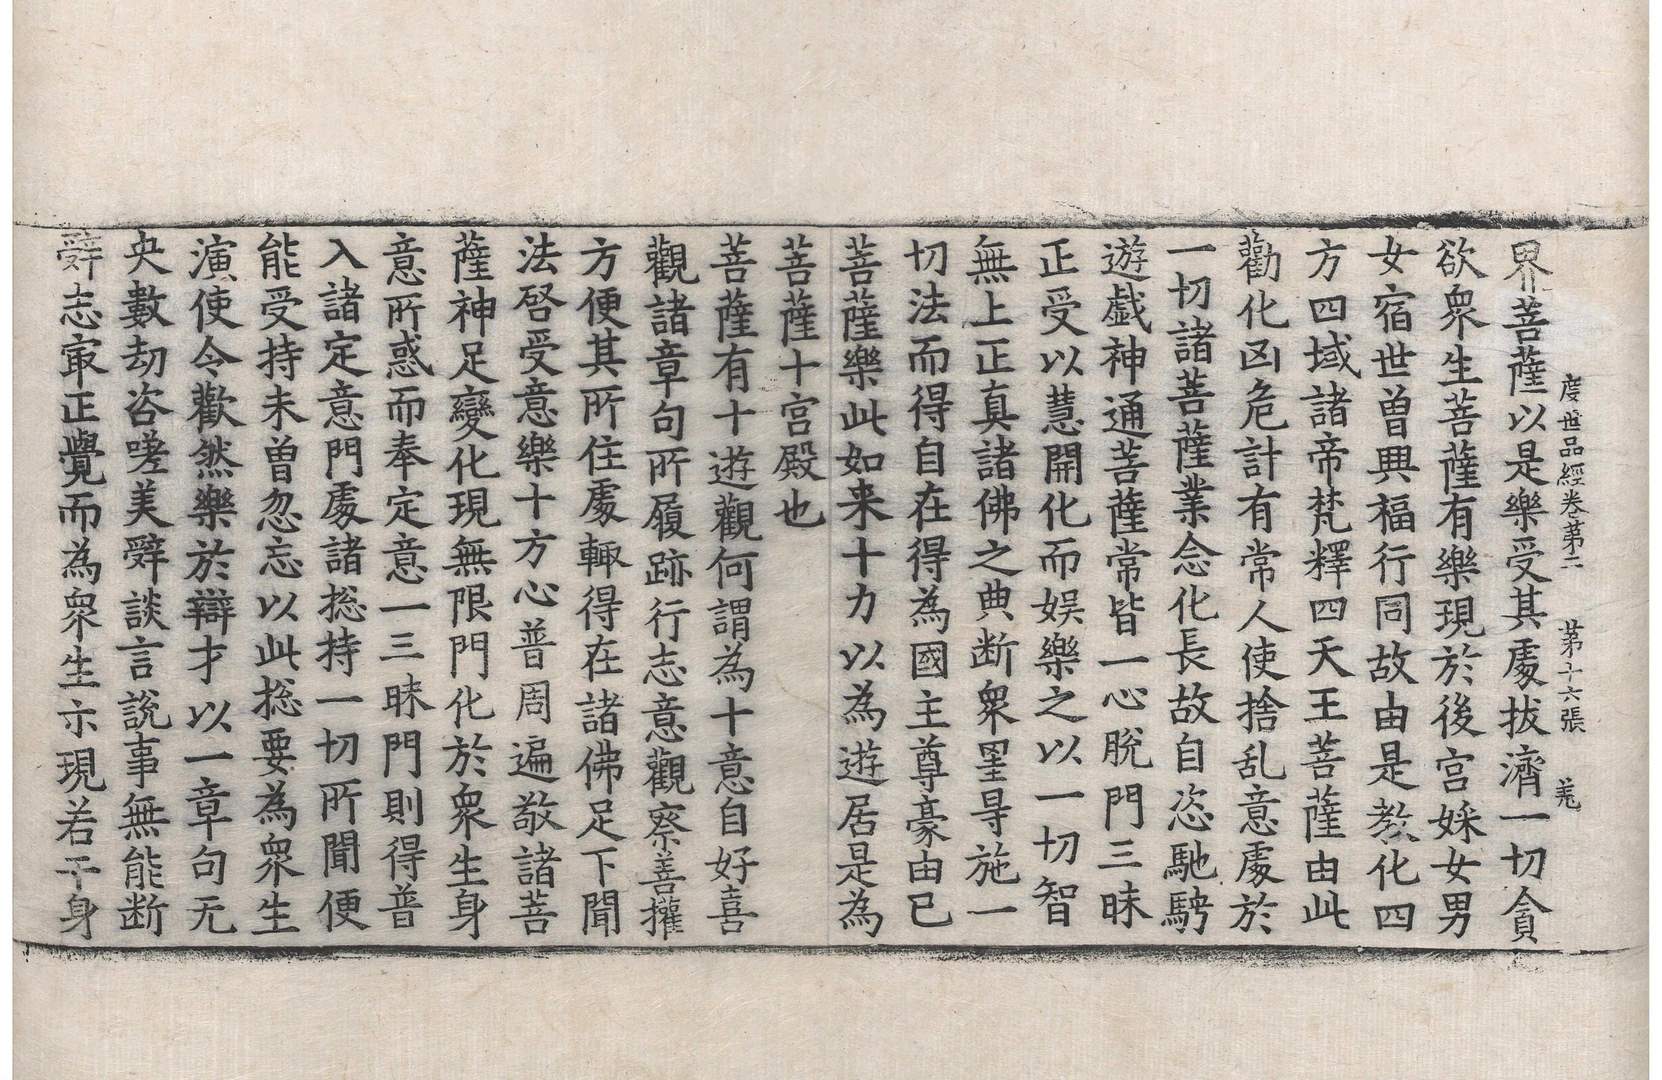 度世品經卷第二 第十六張 羌
界菩薩以是樂受其處拔濟一切貪
欲衆生菩薩有樂現於後宮婇女男
女宿世曽興福行同故由是教化四
方四域諸帝梵釋四天王菩薩由此
勸化凶危計有常人使捨乱意處於
一切諸菩薩業念化長故自恣馳騁
遊戱神通菩薩常皆一心脫門三昧
正受以慧開化而娛樂之以一切智
無上正真諸佛之典断衆罣㝵施一
切法而得自在得為國主尊豪由已
菩薩樂此如来十力以為遊居是為
菩薩十宮殿也
菩薩有十遊觀何謂為十意自好喜
觀諸章句所履跡行志意觀察善攉
方便其所住處輙得在諸佛足下聞
法啓受意樂十方心普周遍敬諸菩
薩神足變化現無限門化於衆生身
意所惑而奉定意一三昧門則得普
入諸定意門處諸捴持一切所聞便
能受持未曽忽忘以此捴要為衆生
演使令歡然樂於辯才以一章句无
央數劫咨嗟美辤談言說事無能断
辤志㝡正覺而為衆生示現若干身